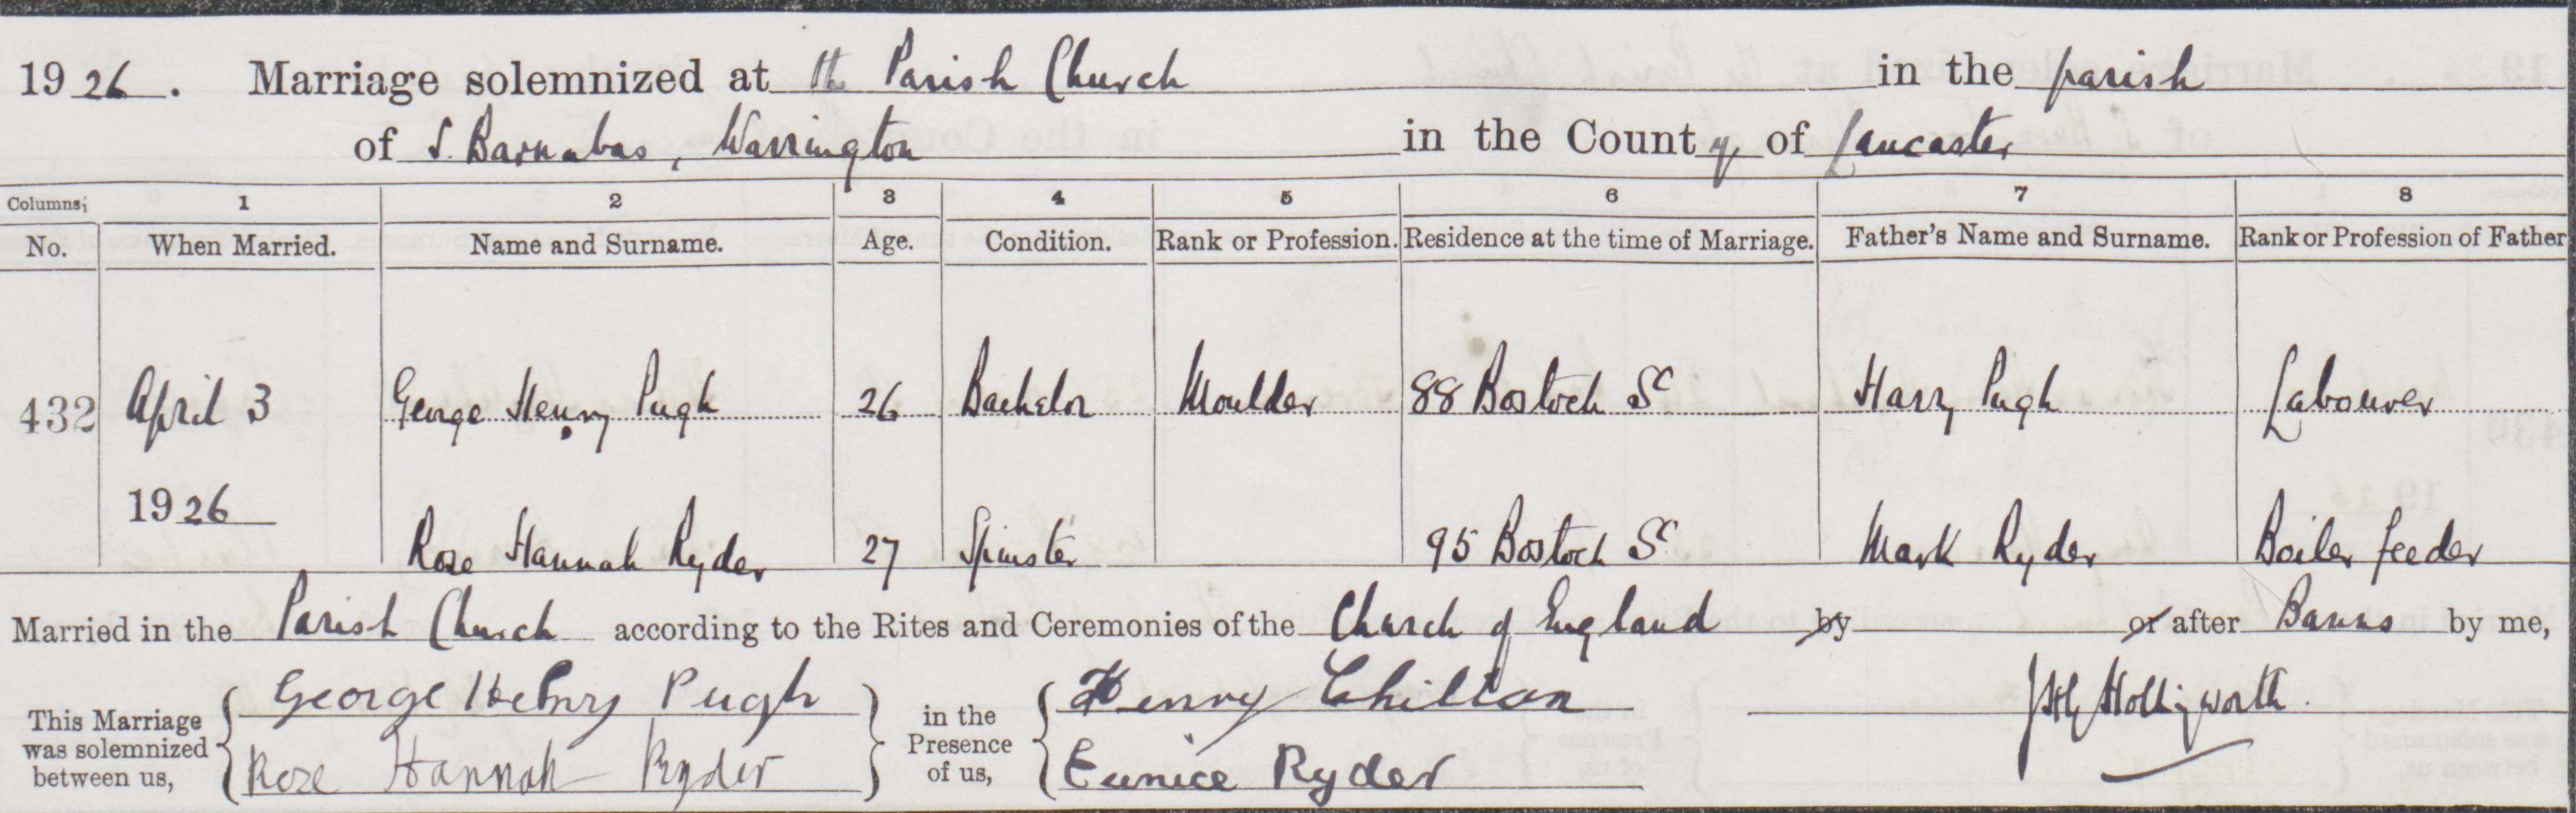 1926. Marriage solemnized at the Parish Church in the parish
of S. Barnabas, Warrington in the County of Lancaster
Columns; 1 2 3 4 5 6 7 8
No. When Married. Name and Surname. Age. Condition. Rank or Profession. Residence at the time of Marriage. Father's Name and Surname. Rank or Profession of Father
432 April 3 George Henry Pugh 26 Bachelor Moulder 88 Bostock St Harry Pugh Labourer
1926
Rose Hannah Ryder 27 Spinster 95 Bostock St Mark Ryder Boiler feeder
Married in the Parish Church according to the Rites and Ceremonies of the Church of England by or after Banns by me,
This Marriage was solemnized between us,
George Henry Pugh
Rose Hannah Ryder
in the Presence of us,
Henry Chilton
Eunice Ryder
Hollingworth.